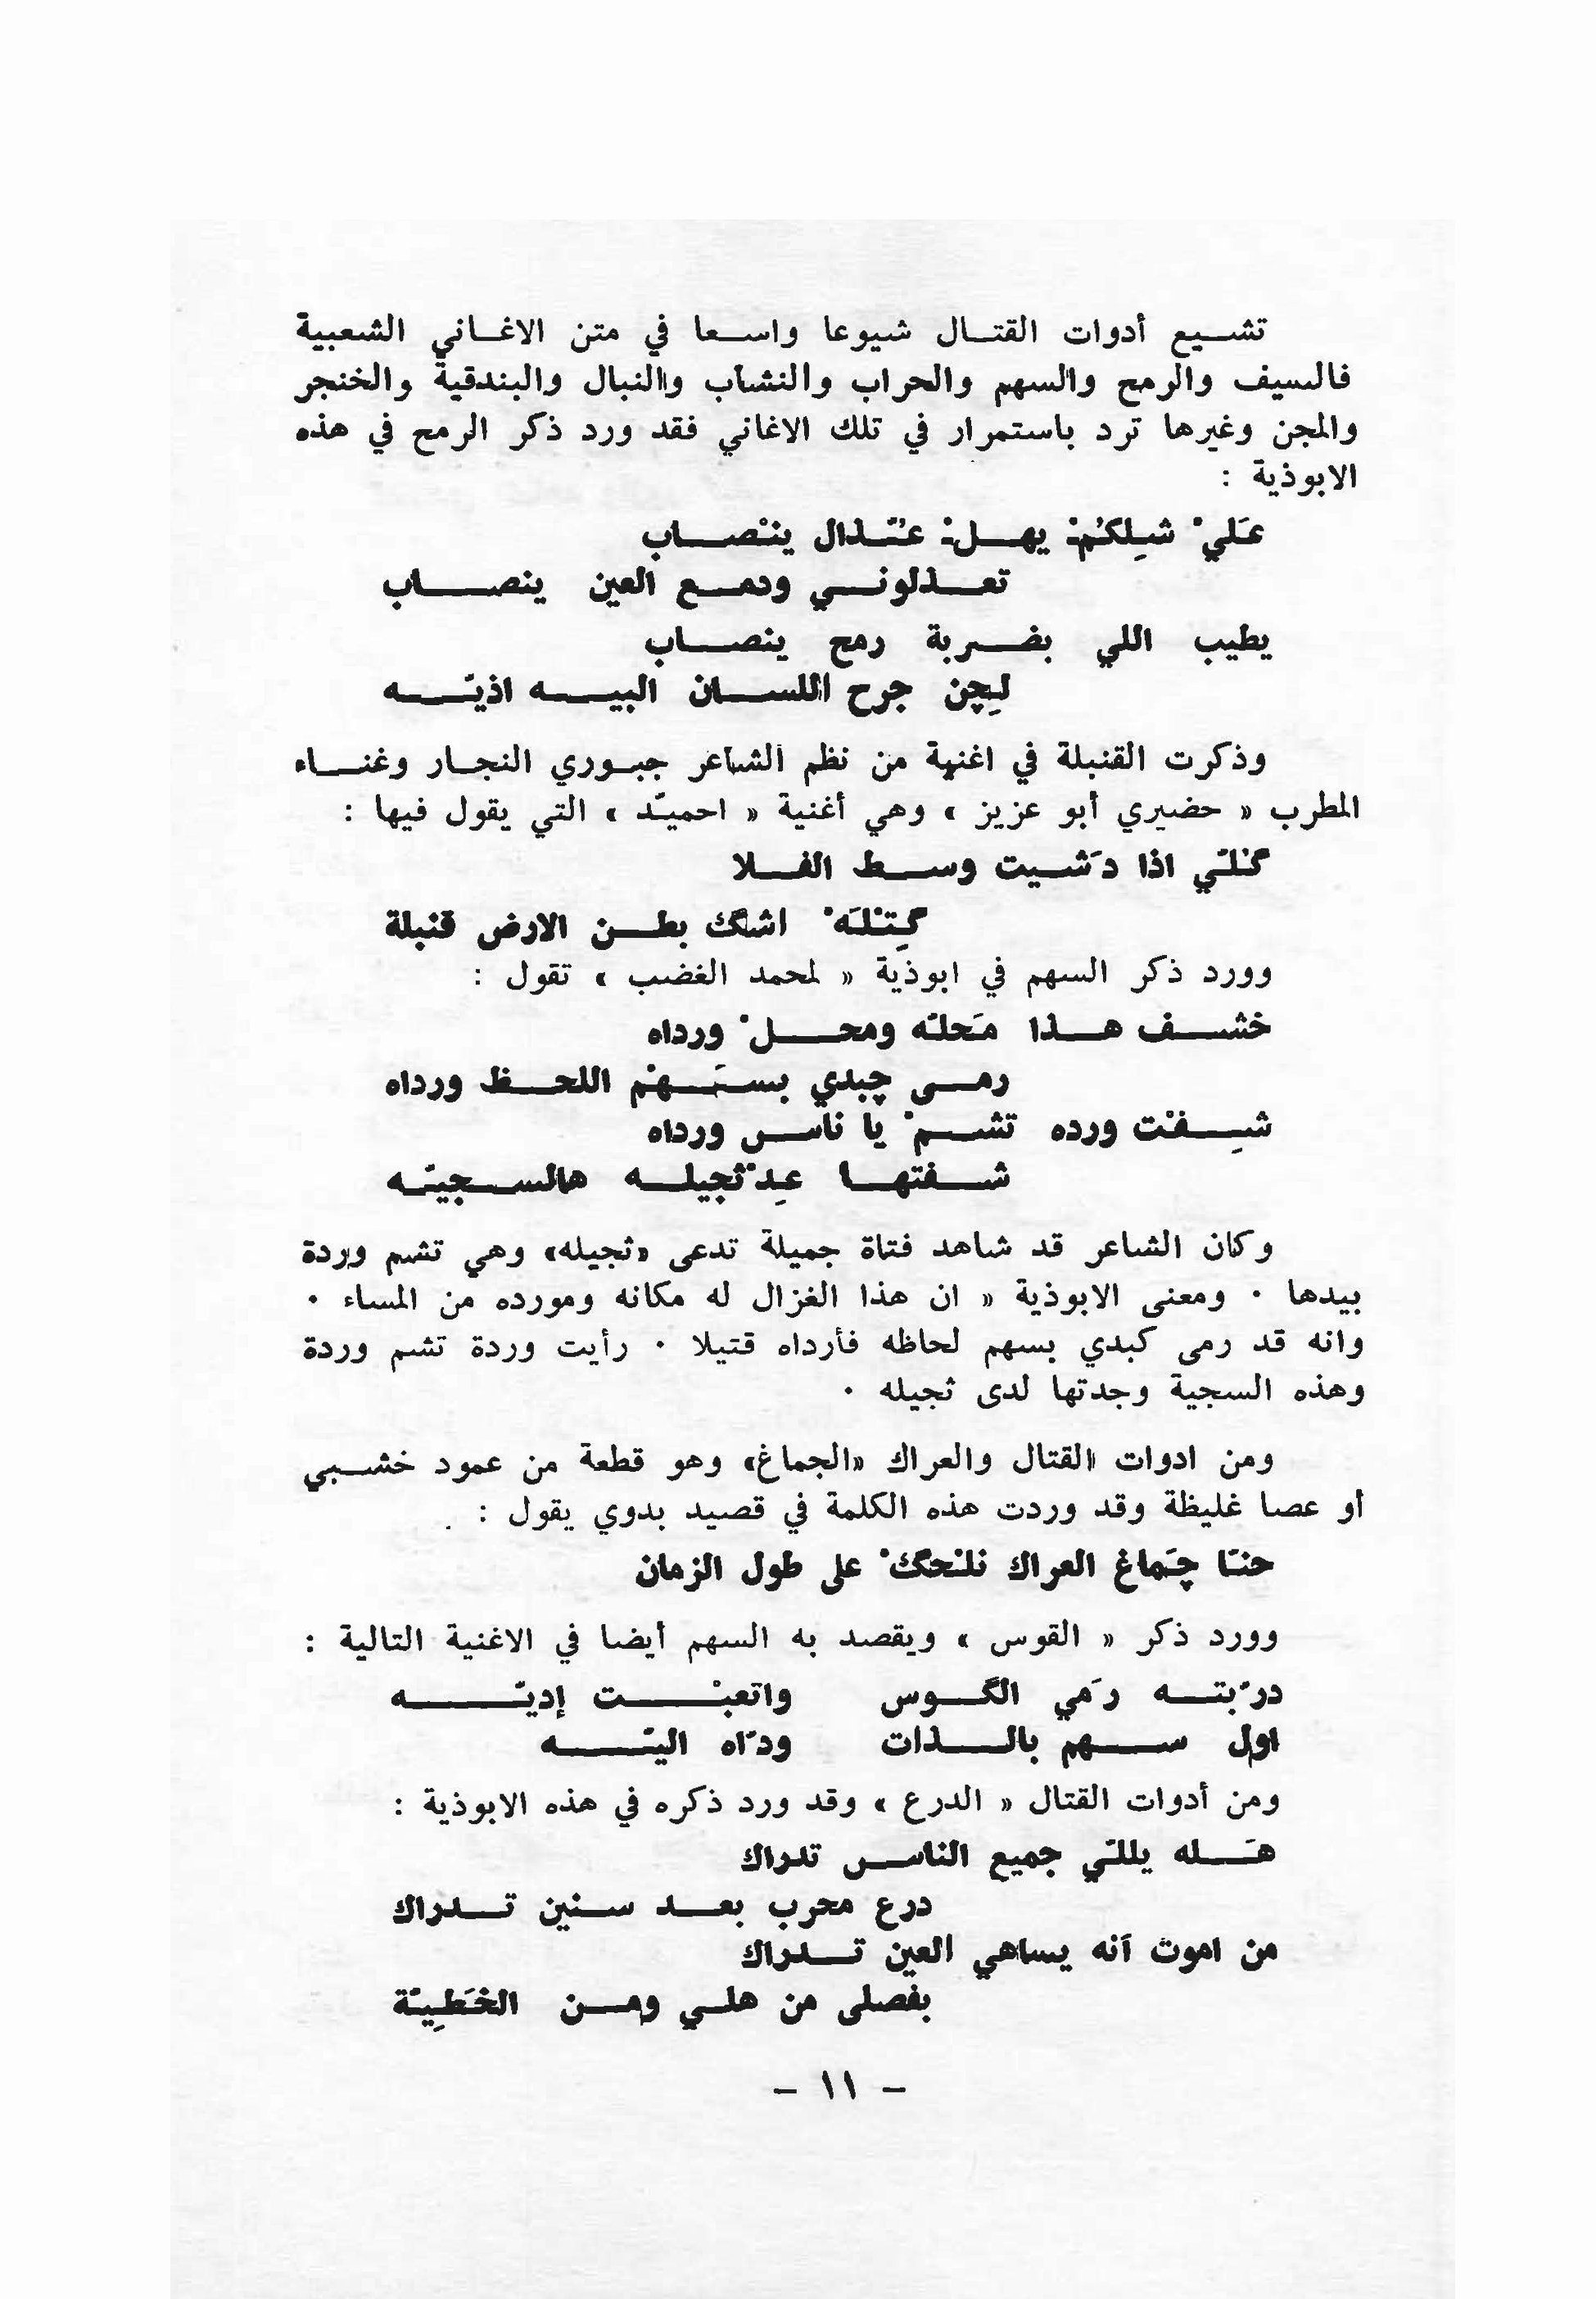 تشيع أدوات القتال شيوعا واسعا في متن الاغاني الشعبية
فالسيف والرمح والسهم والحراب والنشاب والنبال والبندقية والخنجر
والمجن وغيرها ترد باستمرار في تلك الاغاني فقد ورد ذكر الرمح في هذه
الابوذية :
عَليْ شِلكُمْ يهلْ عُتّذال ينْصاب
تعذلوني ودمع العين ينصاب
يطيب اللي بضربة رمح ينصاب
لچِن جرح اللسان البيه اذيّه
وذكرت القنبلة في اغنية من نظم الشاعر جبوري النجار وغناء
المطرب « حضيري أبو عزيز » وهي أغنية « احميّد » التي يقول فيها :
گلّي اذا دَشيت وسط الفلا
گِتْلَهْ اشگ بطن الارض قنبلة
وورد ذكر السهم في ابوذية « لمحمد الغضب » تقول :
خشف هذا مَحلّه ومحلْ ورداه
رمى چبدي بسَهْم اللحظ ورداه
شِفْت ورده تشمْ يا ناس ورداه
شفتها عِدْ ثجيله هالسجيّه
وكان الشاعر قد شاهد فتاة جميلة تدعى «ثجيله» وهي تشم وردة
بيدها . ومعنى الابوذية « ان هذا الغزال له مكانه ومورده من المساء .
وانه قد رمى كبدي بسهم لحاظه فأرداه قتيلا . رأيت وردة تشم وردة
وهذه السجية وجدتها لدى ثجيله .
ومن ادوات القتال والعراك «الجماغ» وهو قطعة من عمود خشبي
أو عصا غليظة وقد وردت هذه الكلمة في قصيد بدوي يقول :
حنّا چَماغ العراك نلْحگْ على طول الزمان
وورد ذكر « القوس » ويقصد به السهم أيضا في الاغنية التالية :
درّبته رَمي الگوس واتعبْت إديّه
اول سهم بالذات ودّاه اليّه
ومن أدوات القتال « الدرع » وقد ورد ذكره في هذه الابوذية :
هَله يللّي جميع الناس تدراك
درع محرب بعد سنين تدراك
من اموت آنه يساهي العين تدراك
بفصلى من هلي ومن الخَطِيّة
- ١١ -